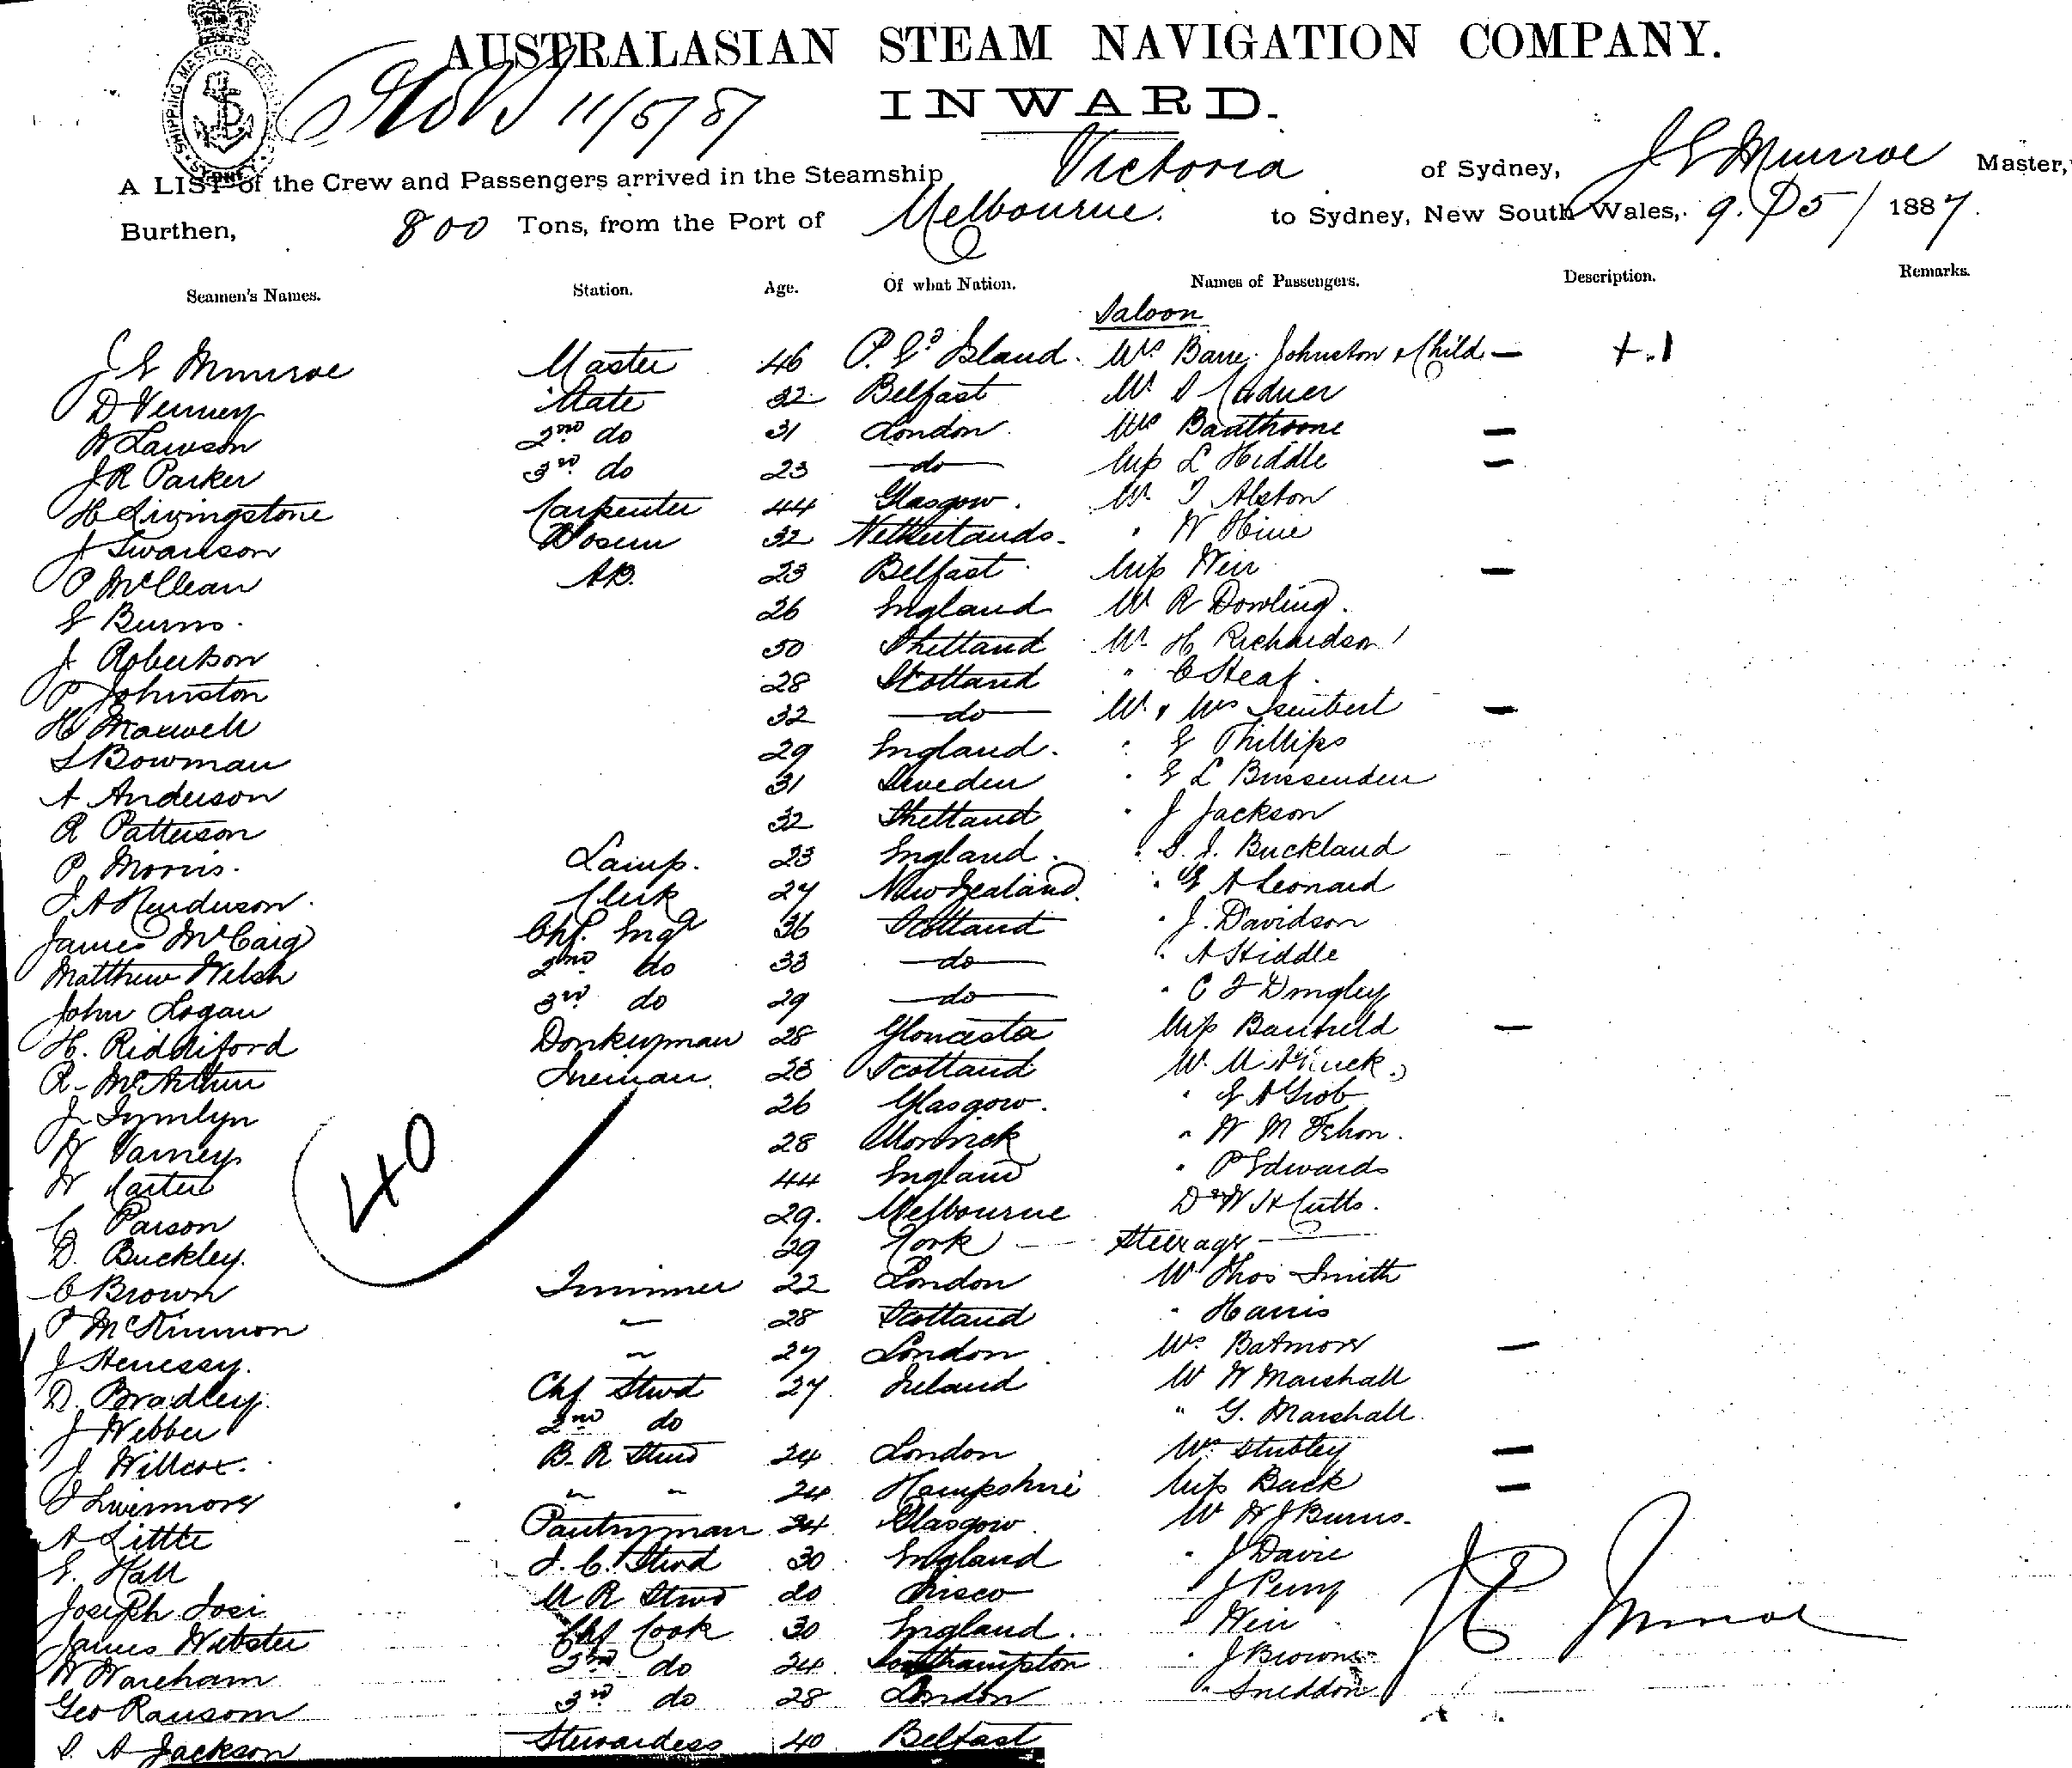 AUSTRALASIAN STEAM NAVIGATION COMPANY.
11/5/87 INWARD.
A LIST of the Crew and Passengers arrived in the Steamship Victoria of Sydney, J E Munroe Master,
Burthen, 800 Tons, from the Port of Melbourne. to Sydney, New South Wales, 9. 5/ 1887.
Seamen's Names. Station. Age. Of what Nation. Names of Passengers. Description. Remarks.
Saloon
J E Munroe Master 46 P. Ed Island. Mrs Barre Johnston & Child — +.1
D Verney Mate 32 Belfast Mr S
W Lawson 2nd do 31 London Mrs —
J R Parker 3rd do 23 —do— Miss L Hiddle —
H Livingstone Carpenter 44 Glasgow. Mr T Alston
J Swanson Bosun 32 Netherlands " W Hine
P McClean AB. 23 Belfast Miss Weir —
E Burns. 26 England Mr R Dowling.
J Robertson 50 Shetland Mr H Richardson
P Johnston 28 Scotland " C Heaf.
H Maxwell 32 —do— Mr & Mrs —
S Bowman 29 England. " E Phillips
A Anderson 31 Sweden " E L Brissenden
R Patterson 32 Shetland " J Jackson
P Morris. Lamp. 23 England. " S. J. Buckland
J A Henderson. Clerk 27 New Zealand. " E A Leonard
James McCaig Chf. Engr 36 Scotland " J. Davidson
Matthew Welsh 2nd do 33 —do— " A Hiddle
John Logan 3rd do 29 —do— " C F Dingley
H. Riddiford Donkeyman 28 Gloucester Miss Banfield —
R McArthur Fireman 23 Scotland Mr
J Tymlyn 26 Glasgow. " E A Grob
W Varney 28 " W M Fehon.
W Carter 44 England " P Edwards
C Parson 29. Melbourne Dr W H Cutts.
D. Buckley. 29 Cork — Steerage —
C Brown Trimmer 22 London Mr Thos Smith
P McKinnon " 28 Scotland " Harris
J Henessy. " 27 London Mrs Batmore —
D. Bradley. Chf Stwd 27. Ireland Mr W Marshall
J Webber 2nd do " G. Marshall
J Willcox. B. R Stwd 24 London Mrs Stubley —
J Livermore " " 24 Hampshire Miss Back —
A Little Pantryman 24 Glasgow Mr W J Burns.
E. Hall F. C. Stwd 30 England " J Davie
Joseph Josi M R Stwd 20 Frisco " J Perry
James Webster Chf Cook 30 England. " Weir
W Wareham 2nd do 24 Southampton " J Browne
Geo Ransom 3rd do 28 London " Sneddon
S. A Jackson Stewardess 40 Belfast
40
J E Munroe